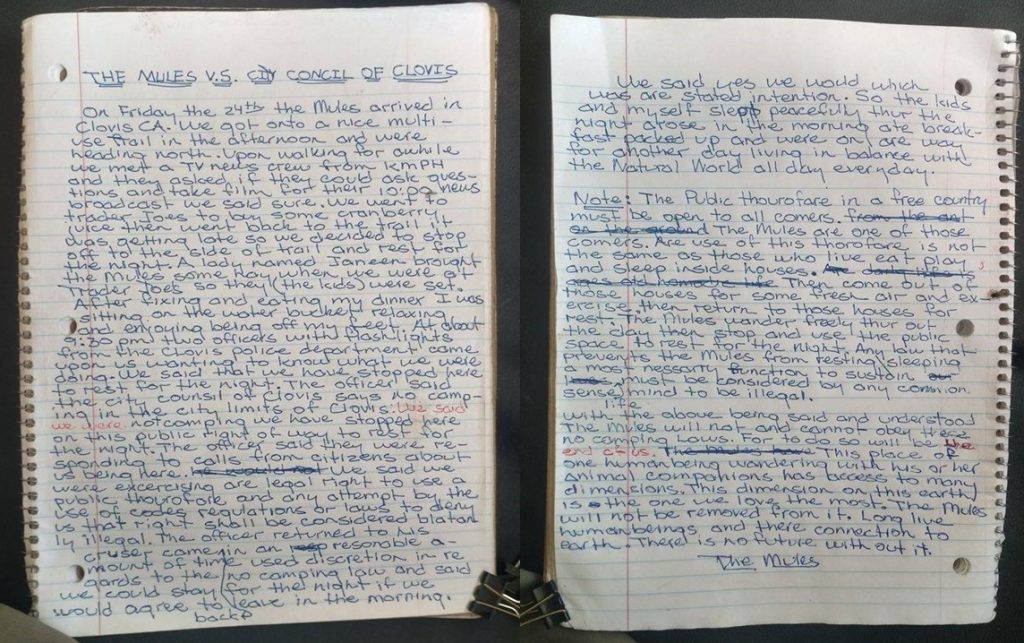 THE MULES V.S. CITY CONCIL OF CLOVIS
On Friday the 24th the Mules arrived in
Clovis CA. We got onto a nice multi-
use trail in the afternoon and were
heading north. Upon walking for awhile
we met a TV news crew from KMPH
and they asked if they could ask ques-
tions and take film for their 10:00 news
broadcast we said sure. We went to
trader Joes to buy some cranberry
juce then went back to the trail it
was getting late so we decided to stop
off to the side of trail and rest for
the night. A lady named Janeen brought
the mules some hay when we were at
Trader Joes so they (the kids) were set.
After fixing and eating my dinner I was
sitting on the water bucket relaxing
and enjoying being off my feet. At about
9:30 pm two officers with flashlights
from the Clovis police department came
upon us wanting to know what we were
doing. We said that we have stopped here
to rest for the night. The officer said
the city counsil of Clovis says no camp-
ing in the city limits of Clovis. We said
we were notcamping we have stopped here
on this public right of way to rest for
the night. The officer said they were re-
sponding to calls from citizens about
us being here. We said we
were excercising are legal right to use a
public thourofare and any attempt by the
use of codes regulations or laws to deny
us that right shall be considered blatan
ly illegal. The officer returned to his
cruser came in an resonable a-
mount of time used discretion in re
gards to the no camping law and said
we could stay for the night if we
would agree to leave in the morning.
back
We said yes we would which
was are stated intention. So the kids
and myself slept peacefully thur the
night arose in the morning ate break-
fast packed up and were on are way
for another day living in balance with
the Natural World all day everyday.
Note: The Public thourofare in a free country
must be open to all comers. from the
on the ground The Mules are one of those
comers. Are use of this thorofare is not
the same as those who live eat play
and sleep inside houses. Then come out of
those houses for some fresh air and ex-
ersise. then return to those houses for
rest. The Mules wander freely thur out
the day then stop and use the public
space to rest for the night. Any law that
prevents the Mules from resting, sleeping
a most nessarty function to sustain our
must be considered by any common
sense mind to be illegal.
life
With the above being said and understood
The Mules will not and cannot obey these
no camping Laws. For to do so will be the
end of us. The Mules have This place of
one human being wandering with his or her
animal companions has access to many
dimensions. This dimension on this earth)
is the one we love the most. The Mules
will not be removed from it. Long live
human beings and there connection to
earth. There is no future with out it.
The Mules